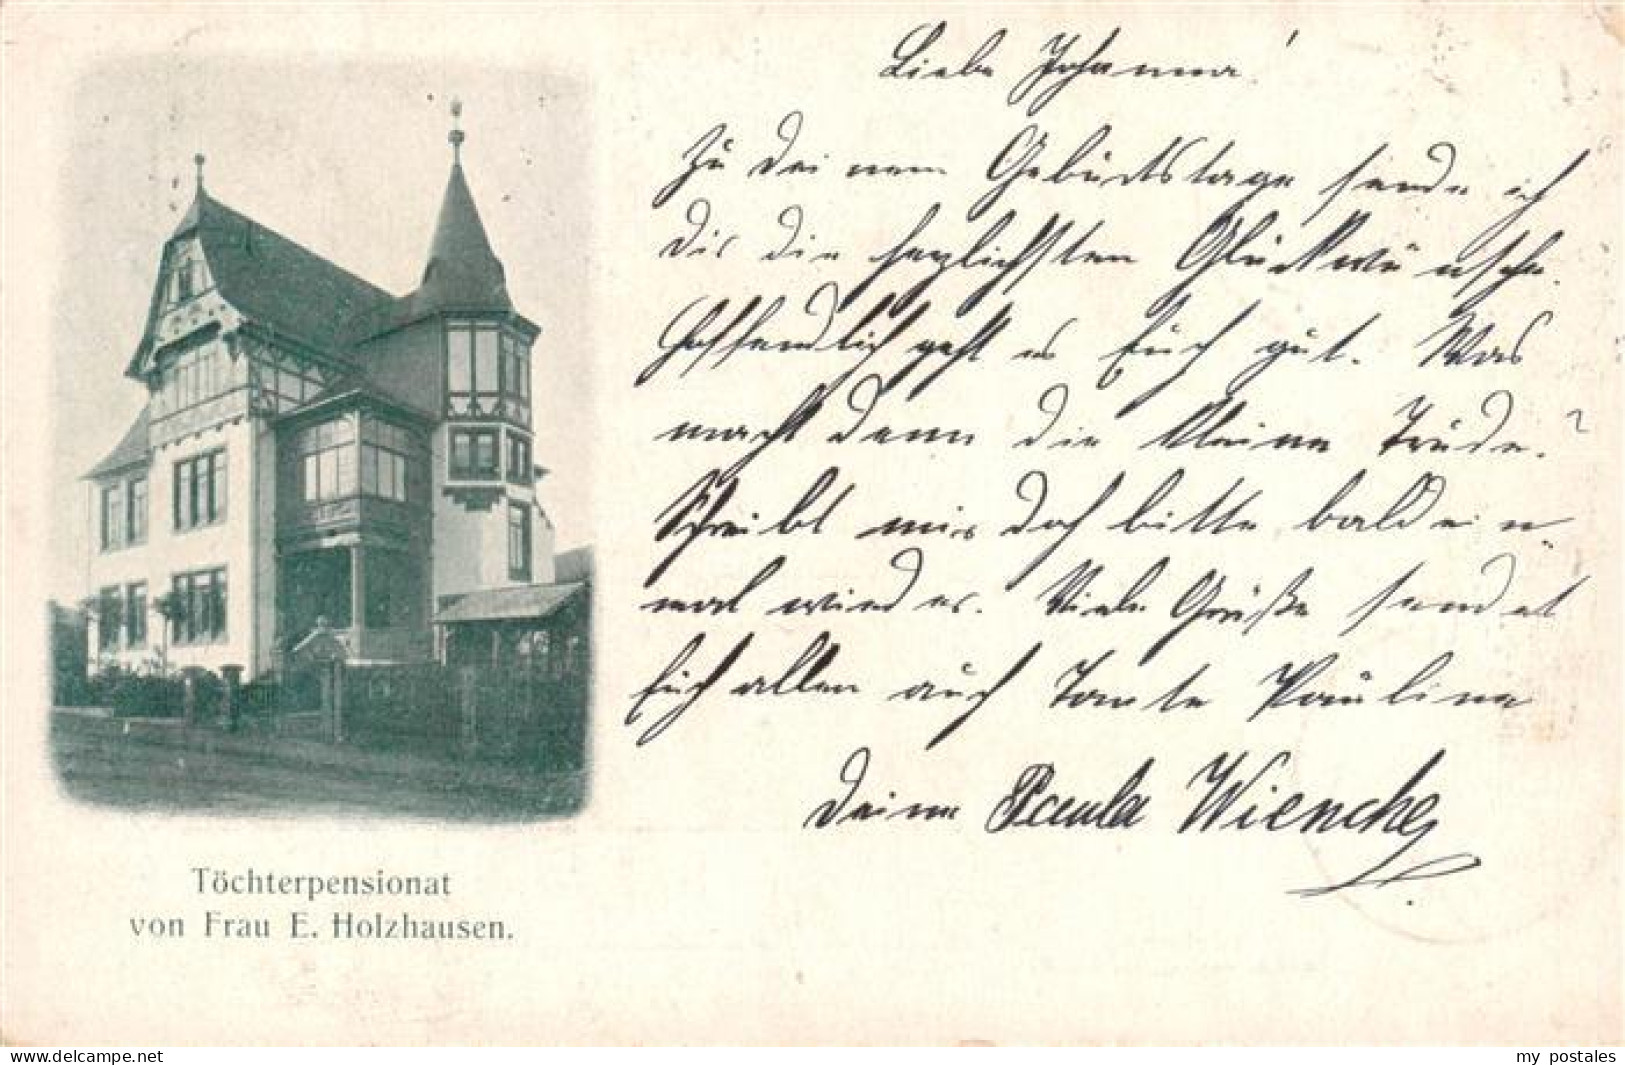 Liebe Johanna!
Zu Deinem Geburtstage sende ich
Dir die herzlichsten Glückwünsche.
Hoffendlich geht es Euch gut. Was
macht denn die kleine Trude?
Schreibt mir doch bitte bald ein-
mal wieder. Viele Grüße sendet
Euch allen auch Tante Pauline
Deine Paula Wiencke
Töchterpensionat
von Frau E. Holzhausen.
www.delcampe.net
my_postales